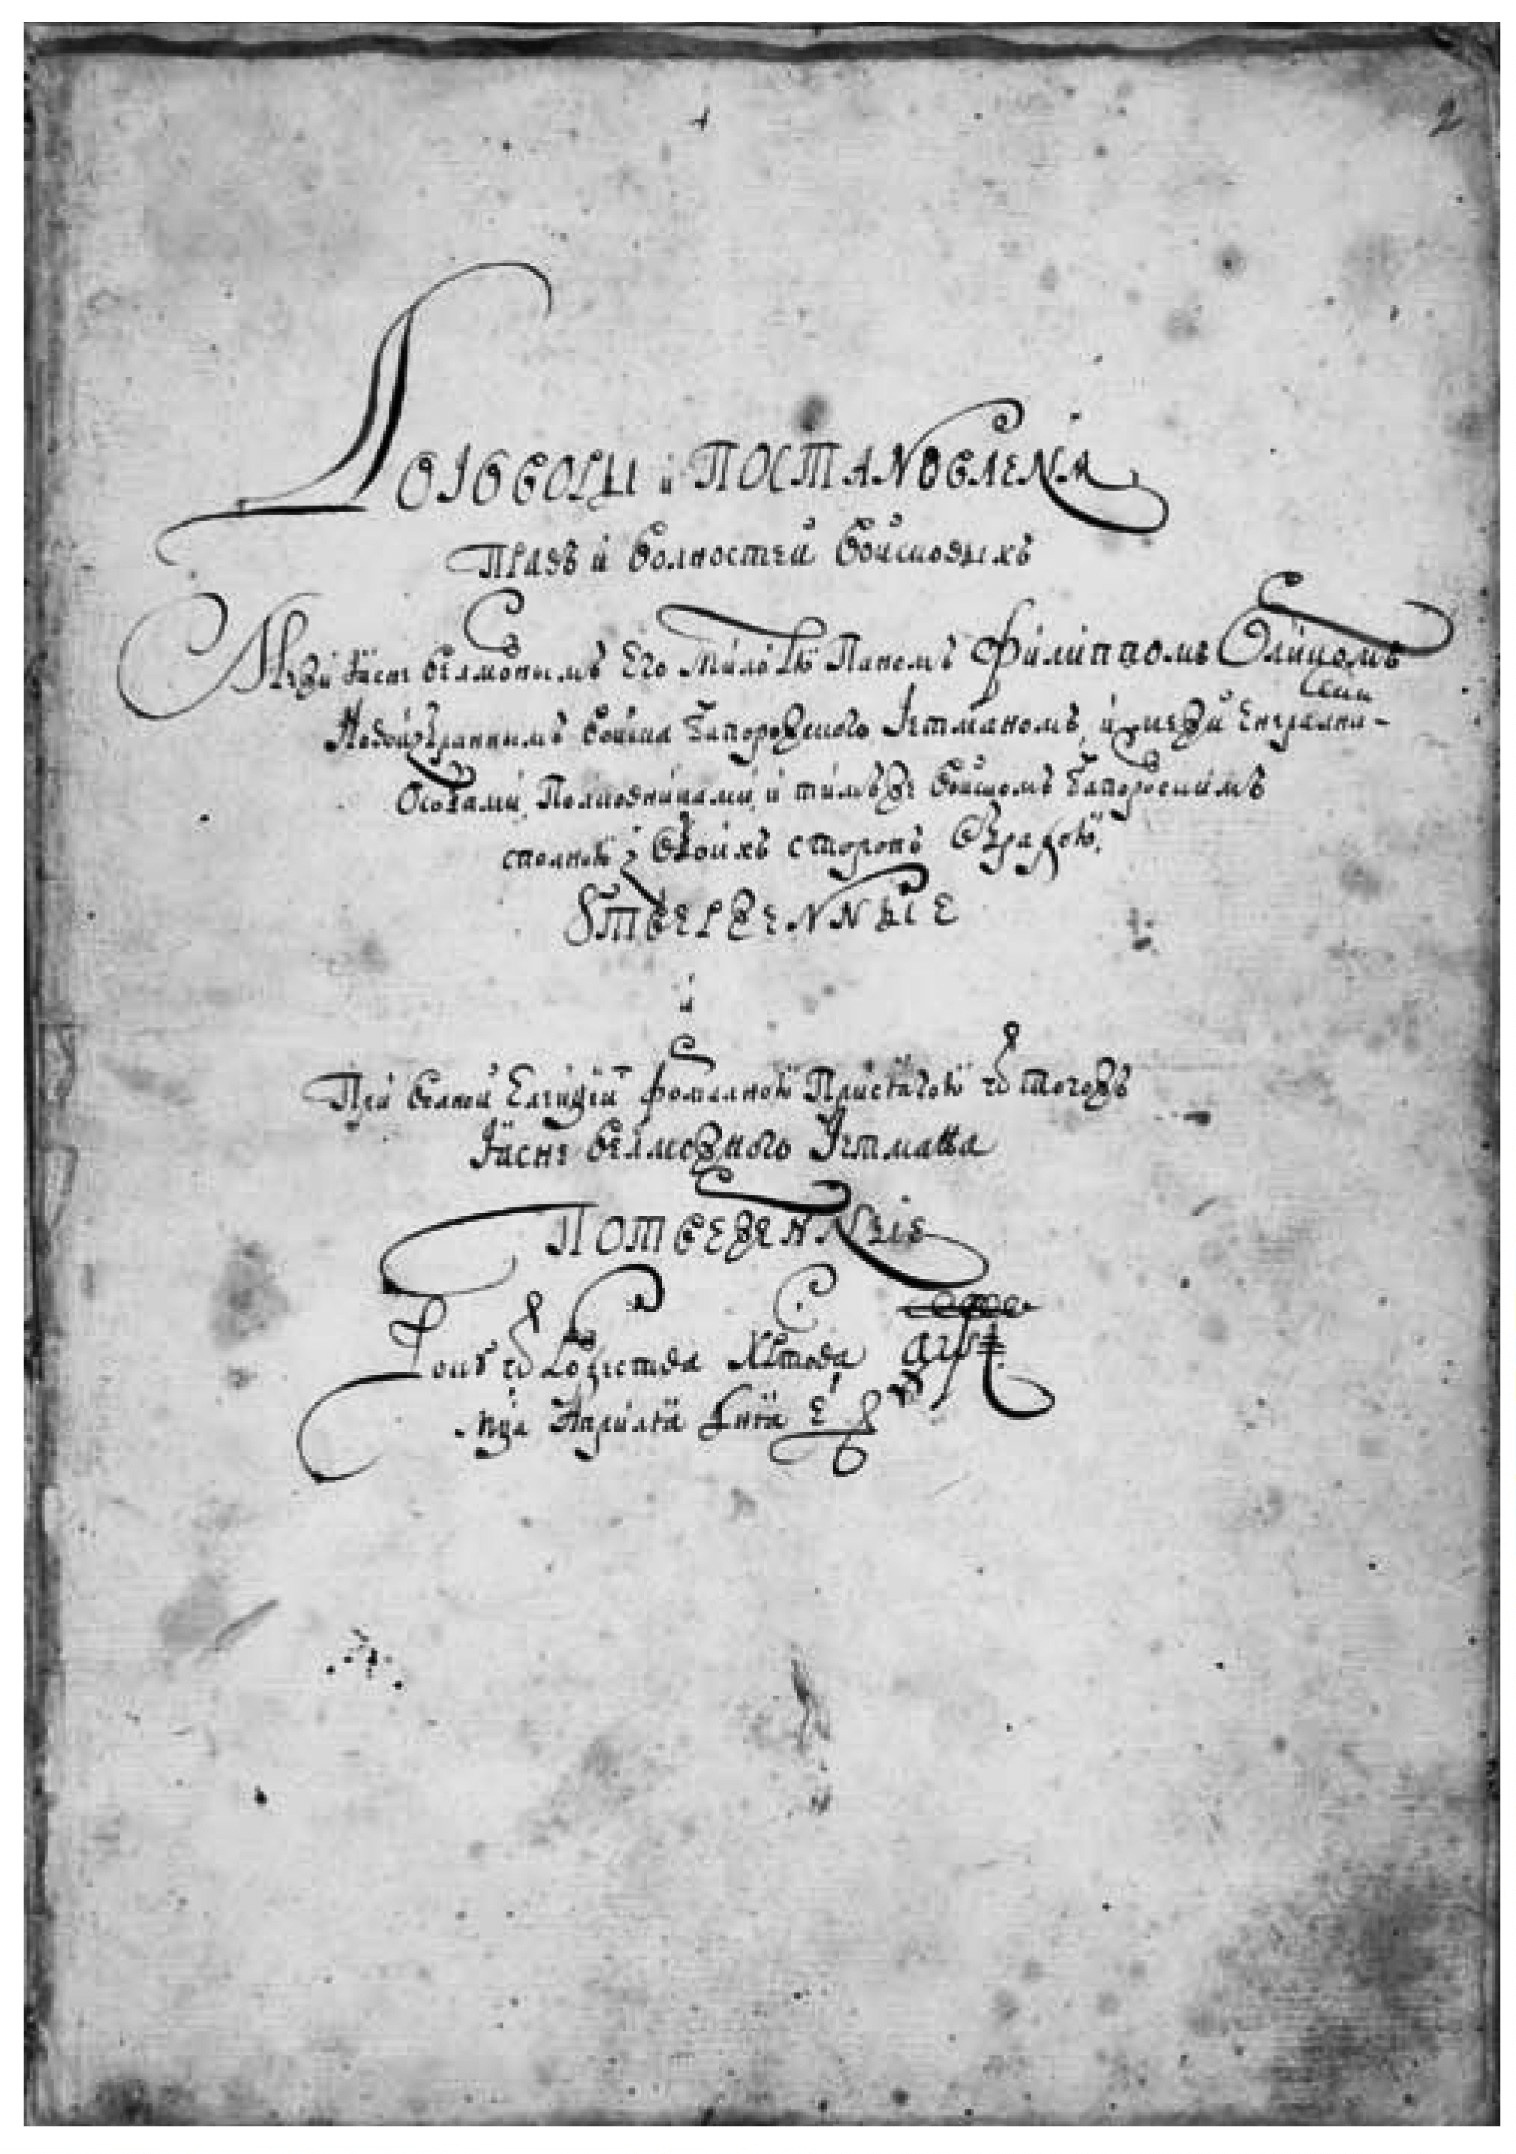 2
Договоры и Постановленѧ
Правъ и волностей войсковыхъ
Межи Ясне велможнымъ Его Милостю Паномъ Филиппомъ Орликомъ
Новоизбраннымъ войска Запорожского Гетманом, и межи Енерални-
ми
Особами, Полковниками, и тимъ же войском Запорозскимъ
сполною з обоихъ сторонъ обрадою,
Утверженные
и
При волной Елекции формалною Присягою от тогожъ
Ясне велможного Гетмана
Потверженные
Року от Рожества Христова ҂аѱі
мца Априлꙗ днꙗ е҃